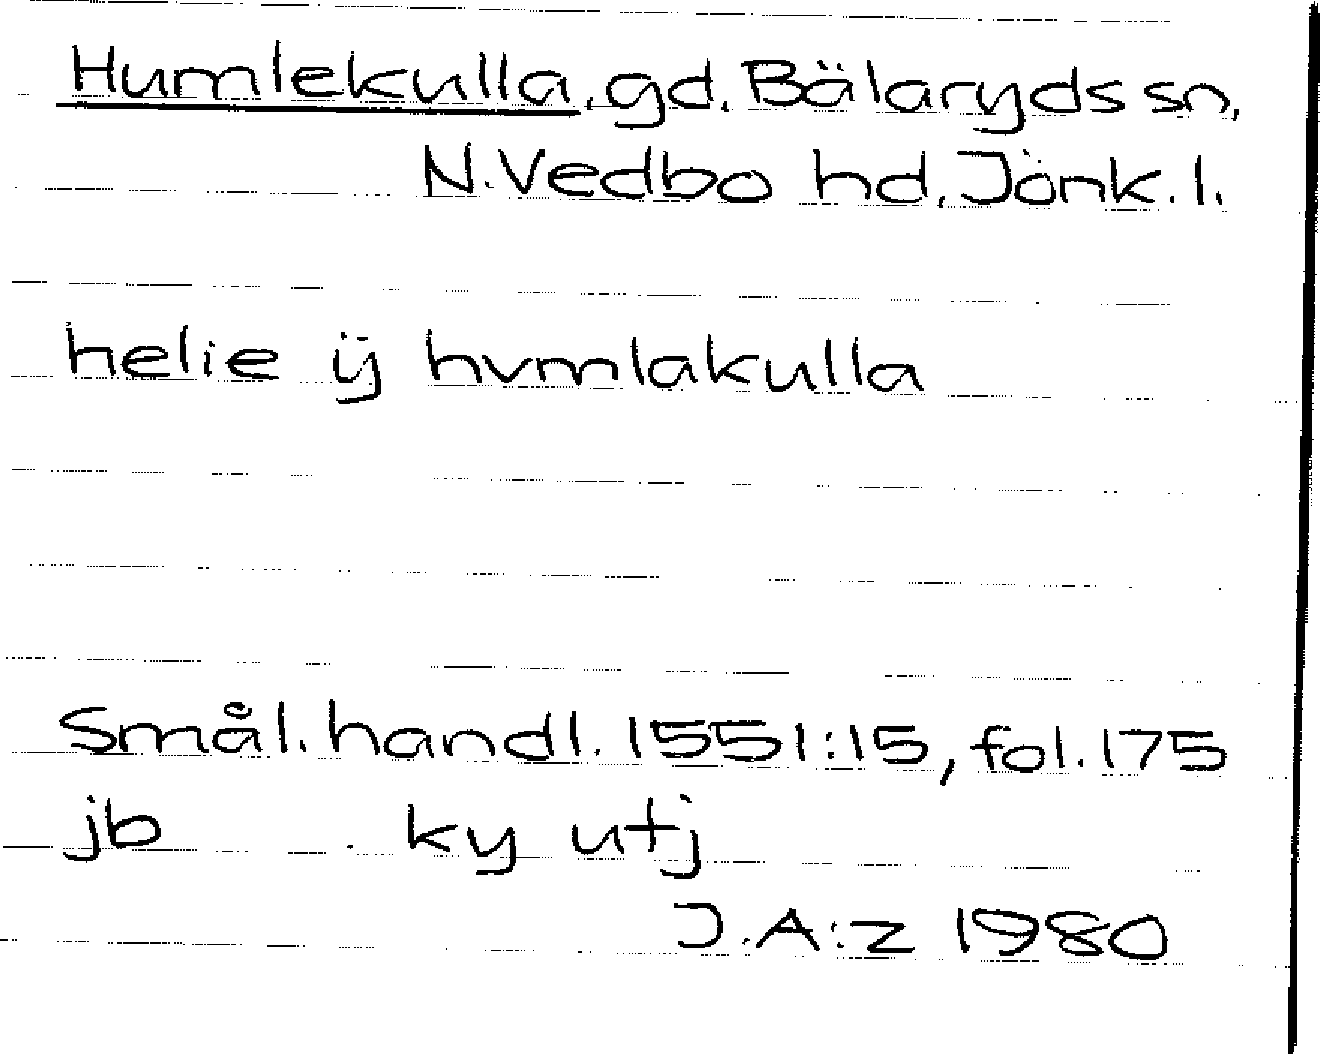 Humlekulla, gd. Bälaryds sn,
N. Vedbo hd, Jönk. l.
helie ÿ hvmlakulla
Smål. handl. 1551:15, fol. 175
jb ky utj
J.A:z 1980